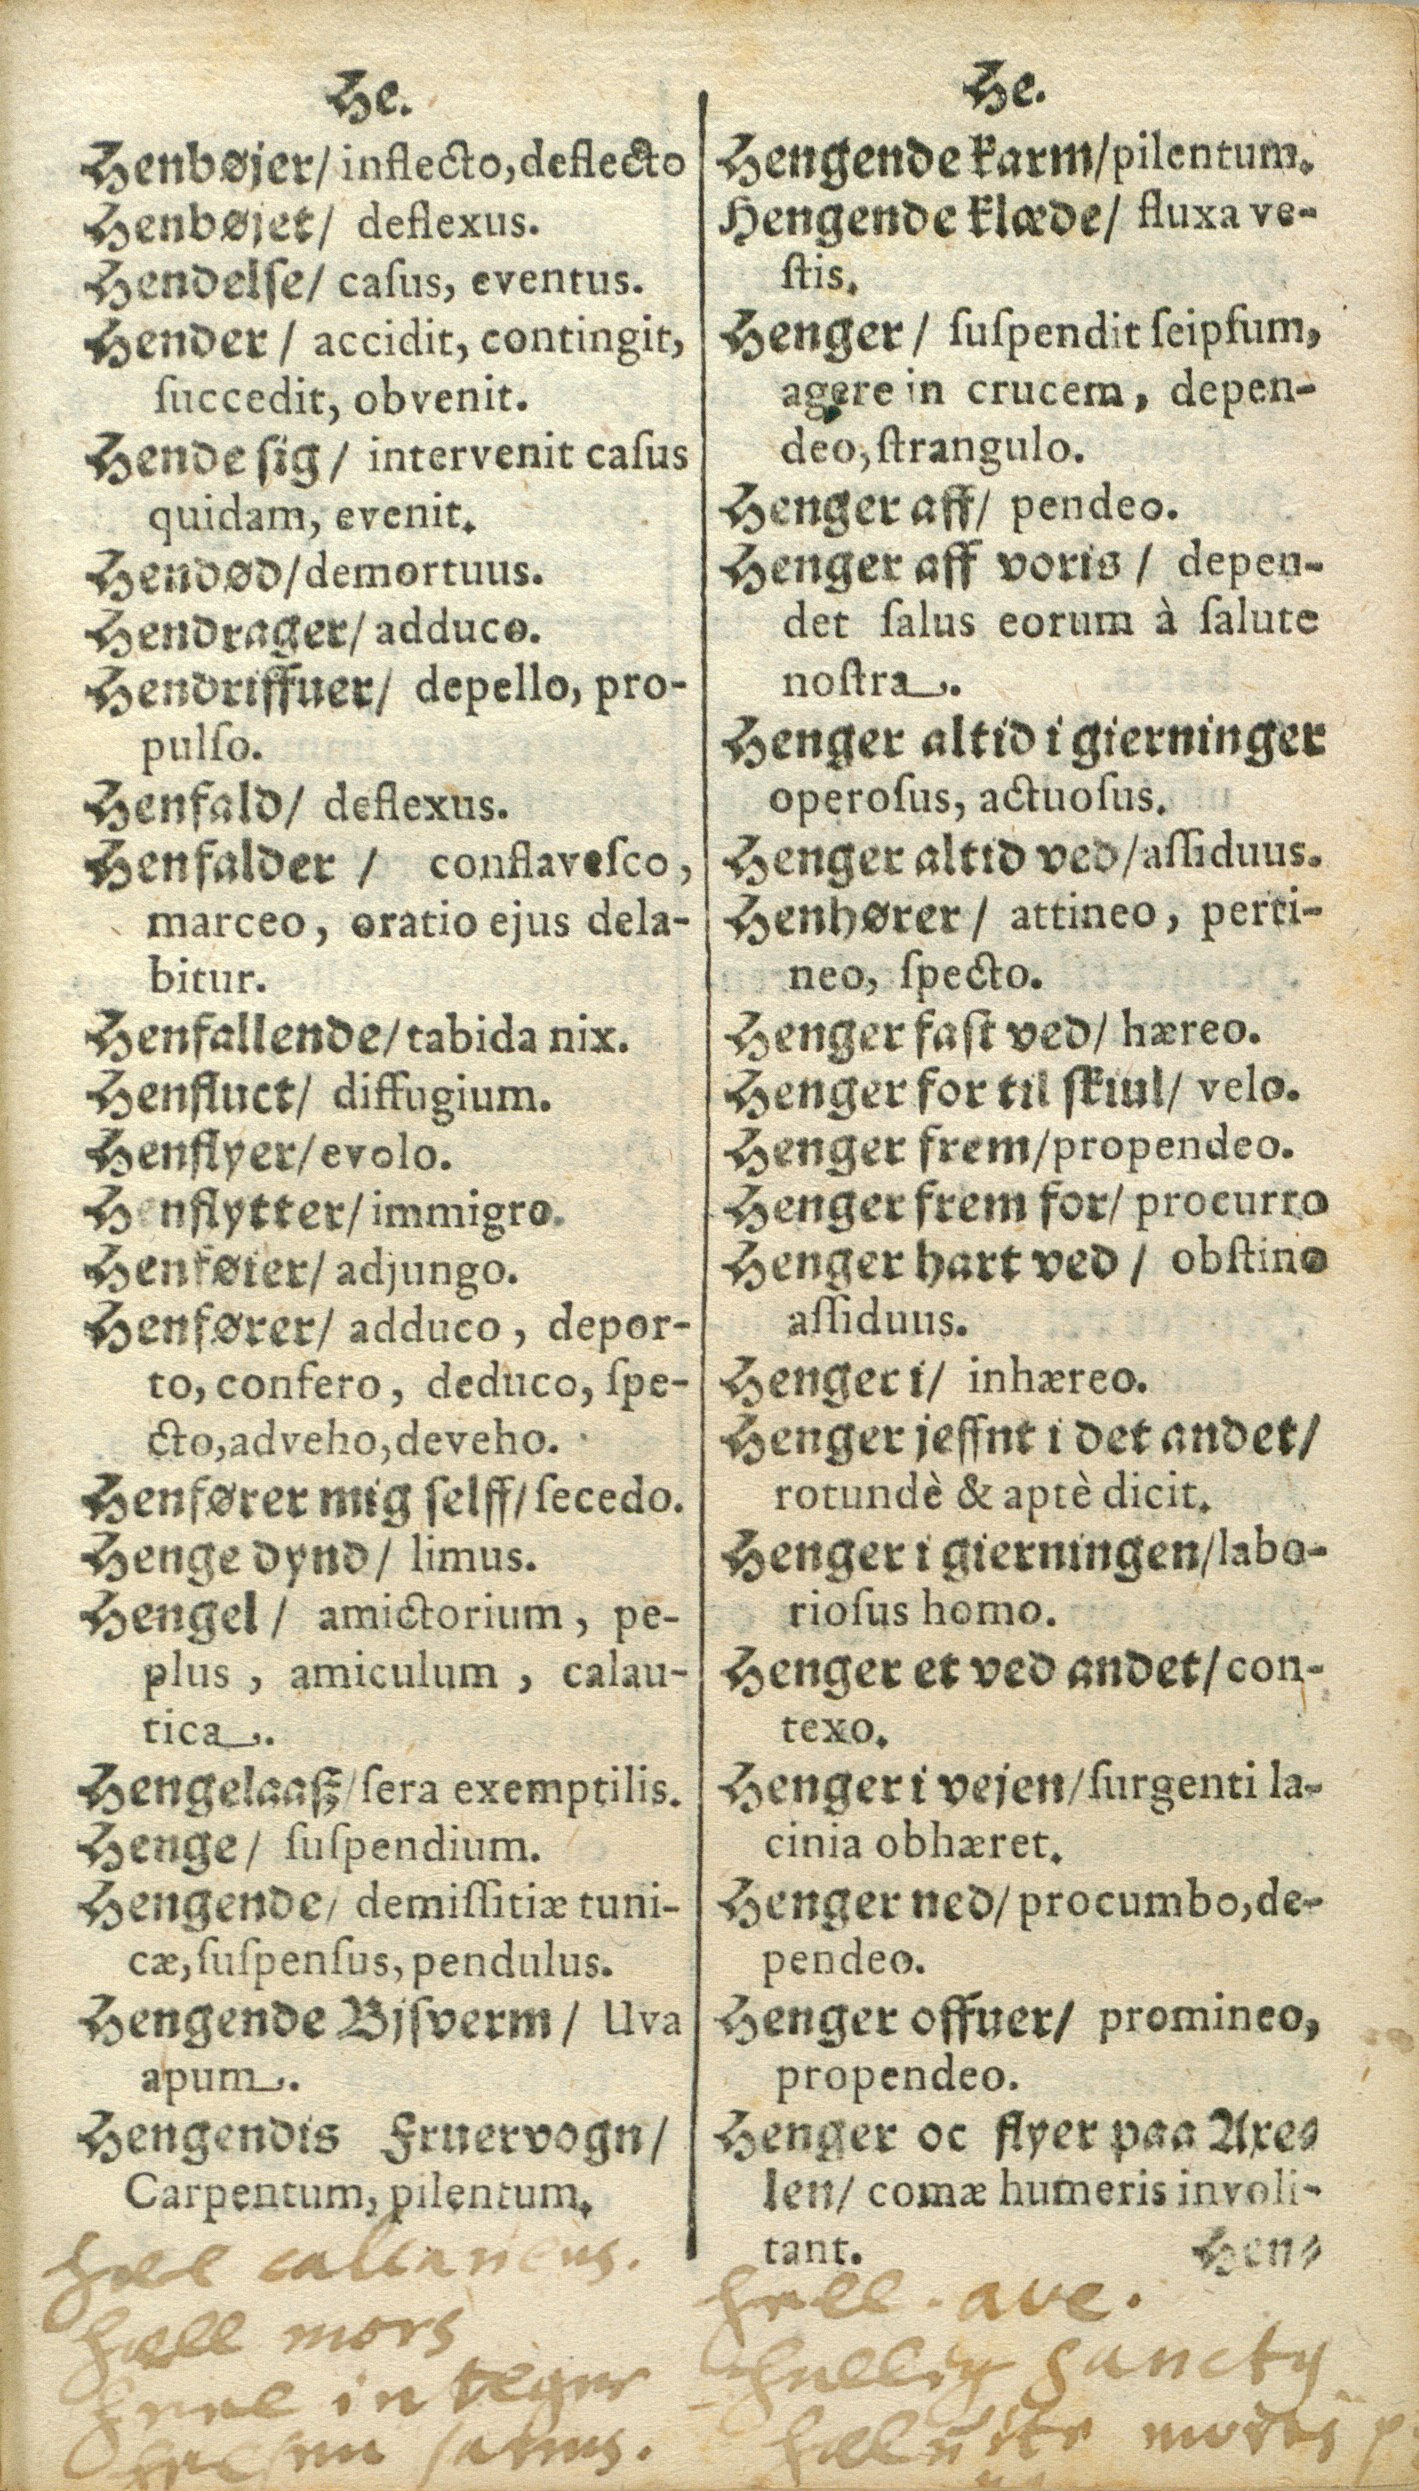 He.
Henbøjer/ inflecto, deflecto
Henbøjet/ deflexus.
Hendelſe/ caſus, eventus.
Hender / accidit, contingit,
ſuccedit, obvenit.
Hende ſig / intervenit caſus
quidam, evenit.
Hendød/ demortuus.
Hendrager/ adduco.
Hendriffuer/ depello, pro-
pulſo.
Henfald/ deflexus.
Henfalder / conflaveſco,
marceo, oratio ejus dela-
bitur.
Henfallende/ tabida nix.
Henfluct/ diffugium.
Henflyer/ evolo.
Henflytter/ immigro.
Henføier/ adjungo.
Henfører/ adduco, depor-
to, confero, deduco, ſpe-
cto, adveho, deveho.
Henfører mig ſelff/ ſecedo.
Henge dynd/ limus.
Hengel / amictorium, pe-
plus, amiculum, calau-
tica.
Hengelaaſz/ ſera exemptilis.
Henge/ ſuſpendium.
Hengende/ demiſſitiæ tuni-
cæ, ſuſpenſus, pendulus.
Hengende Bjſverm / Uva
apum.
Hengendis Fruervogn/
Carpentum, pilentum.
hæl calcaneus.
hæll mors
heel integer
ſanus.
He.
Hengende karm/ pilentum.
Hengende klæde/ fluxa ve-
ſtis.
Henger / ſuſpendit ſeipſum,
agere in crucem, depen-
deo, ſtrangulo.
Henger aff/ pendeo.
Henger aff voris / depen-
det ſalus eorum à ſalute
noſtra.
Henger altid i gierninger
operoſus, actuoſus.
Henger altid ved/ aſſiduus.
Henhører/ attineo, perti-
neo, ſpecto.
Henger faſt ved/ hæreo.
Henger for til ſkiul/ velo.
Henger frem/ propendeo.
Henger frem for/ procurro
Henger hart ved / obſtino
aſſiduus.
Henger i/ inhæreo.
Henger jeffnt i det andet/
rotundè & aptè dicit.
Henger i gierningen/ labo-
rioſus homo.
Henger et ved andet/ con-
texo.
Henger i vejen/ ſurgenti la-
cinia obhæret.
Henger ned/ procumbo, de-
pendeo.
Henger offuer/ promineo,
propendeo.
Henger oc flyer paa Axe-
len/ comæ humeris involi-
tant.
Hen-
hell. ave.
hellig